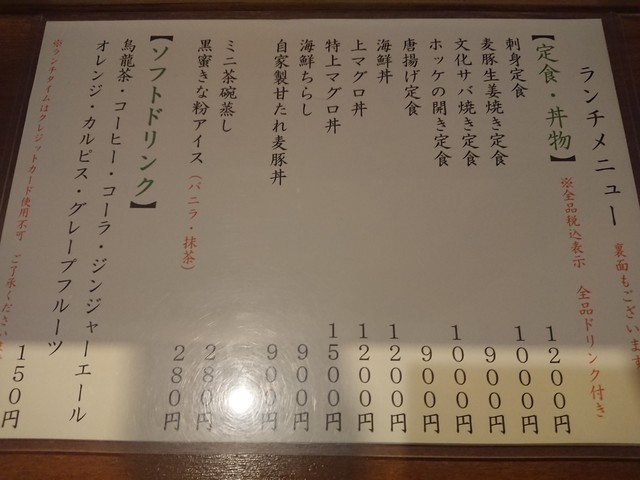 ランチメニュー 裏面もございます
【定食・丼物】 ※全品税込表示 全品ドリンク付き
刺身定食 1200円
麦豚生姜焼き定食 1000円
文化サバ焼き定食 900円
ホッケの開き定食 1000円
唐揚げ定食 900円
海鮮丼 1200円
上マグロ丼 1200円
特上マグロ丼 1500円
海鮮ちらし 900円
自家製甘たれ麦豚丼 900円
ミニ茶碗蒸し 280円
黒蜜きな粉アイス(バニラ・抹茶) 280円
【ソフトドリンク】
烏龍茶・コーヒー・コーラ・ジンジャーエール
オレンジ・カルピス・グレープフルーツ 150円
※ランチタイムはクレジットカード使用不可 ご了承くださいます